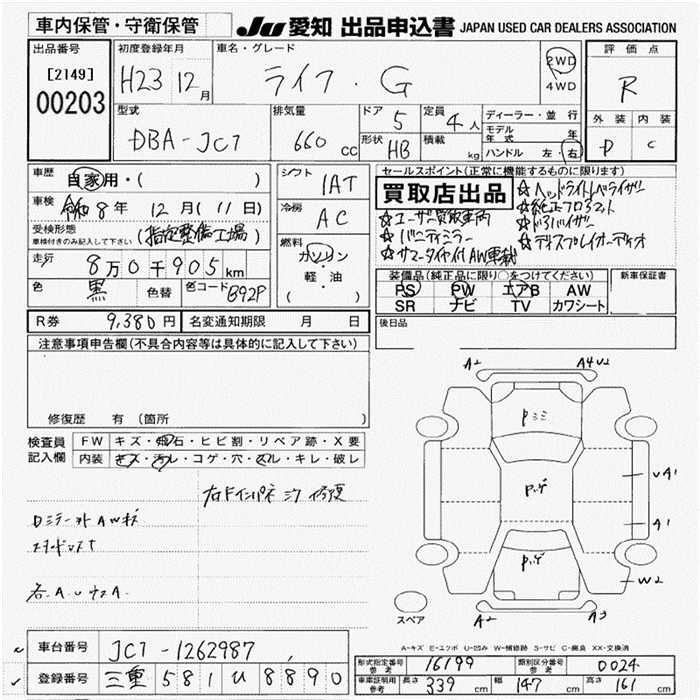 車内保管・守衛保管
JU 愛知 出品申込書 JAPAN USED CAR DEALERS ASSOCIATION
出品番号
[2149]
00203
初度登録年月
H23 12月
車名・グレード
ライフ・G
2WD
4WD
評価点
R
外装 内装
D C
型式
DBA-JC1
排気量
660 cc
ドア 5
定員 4人
形状 HB
積載 kg
ディーラー・並行
モデル年式 年
ハンドル 左・右
車歴 自家用・( )
車検 令和8年 12月(11日)
受検形態 (指定整備工場)
車検付きのみ記入して下さい
走行 8万0千905km
色 黒 色替 色コード B92P
シフト 1AT
冷房 AC
燃料 ガソリン
・軽・油
( )
セールスポイント(正常に機能するものに限ります)
買取店出品
☆ユーザー買取車両
☆バニティミラー
☆サマータイヤ付AW車載
☆ヘッドライトレベライザー
☆純正フロアマット
☆ドアバイザー
☆ディスプレイオーディオ
装備品(純正品に限り○をつけてください)
PS PW エアB AW
SR ナビ TV カワシート
新車保証書
後日品
R券 9,380円 名変通知期限 月 日
注意事項申告欄(不具合内容等は具体的に記入して下さい)
修復歴 有(箇所
検査員記入欄
FW キズ・飛石・ヒビ割・リペア跡・X要
内装 キズ・汚レ・コゲ・穴・ズレ・キレ・破レ
右Fインパネ
各A
A2 A4U2
Pミミ
P.ゲ
UA1
A1
P.ゲ
W2
A2 A3
スペア
A-キズ E-エクボ U-凹み W-補修跡 S-サビ C-腐食 XX-交換済
車台番号 JC1-1262987
登録番号 三重 581 U 8890
形式指定番号 参考 16199
類別区分番号 参考 0024
車庫証明用 参考 長さ 339 cm 幅 147 cm 高さ 161 cm